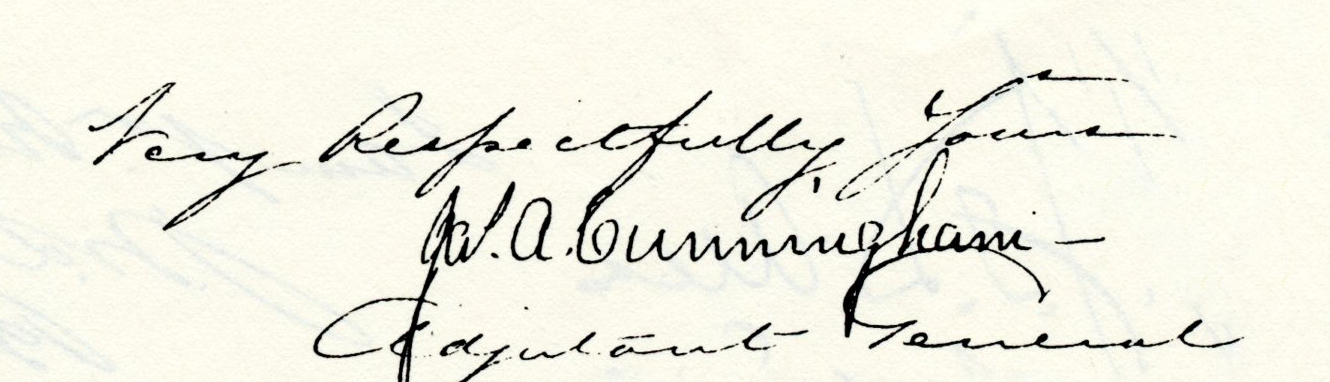 Very Respectfully Yours
W. A. Cunningham
Adjutant General